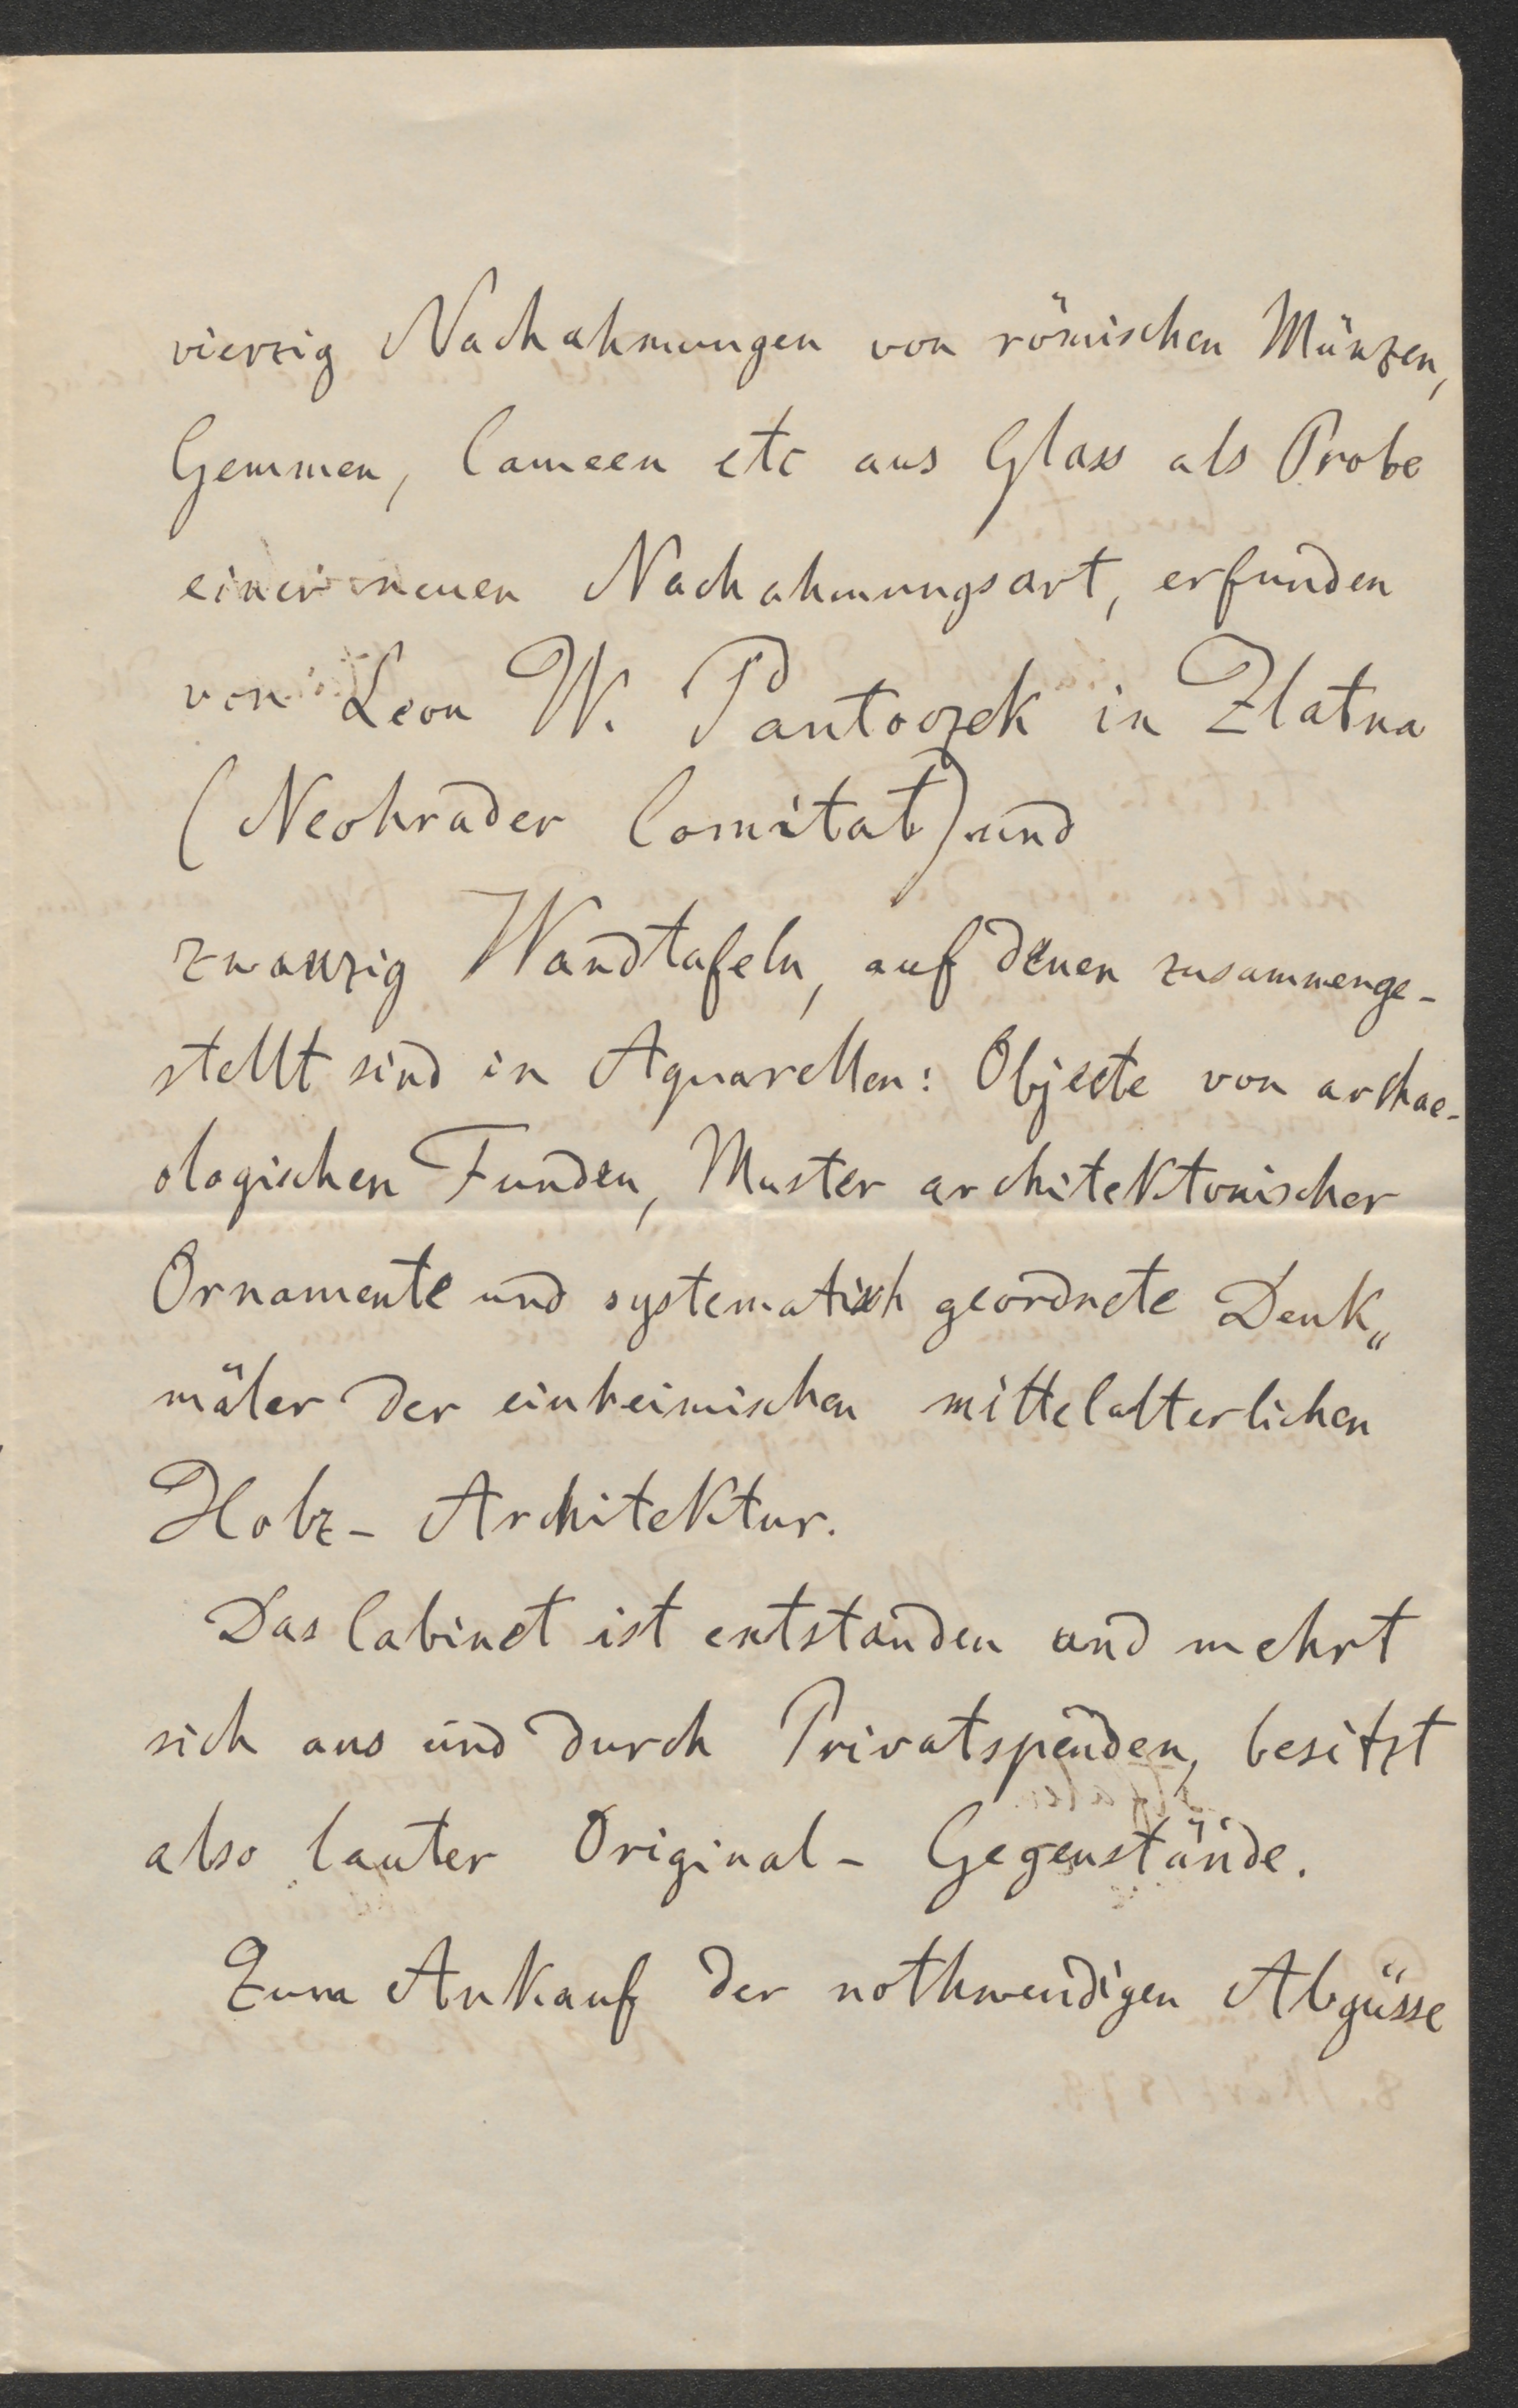 vierzig Nachahmungen von römischen Münzen,
Gemmen, Cameen etc aus Glass als Probe
einer neuen Nachahmungsart, erfunden
von Leon W. Pantoczek in Zlatna
(Neohrader Comitat) und
zwanzig Wandtafeln, auf denen zusammenge-
stellt sind in Aquarellen: Objecte von archae-
ologischen Funden, Muster architektonischer
Ornamente und systematisch geordnete Denk„
mäler der einheimischen mittelalterlichen
Holz- Architektur.
Das Cabinet ist entstanden und mehrt
sich aus und durch Privatspenden, besitzt
also lauter Original- Gegenstände.
Zum Ankauf der nothwendigen Abgüsse